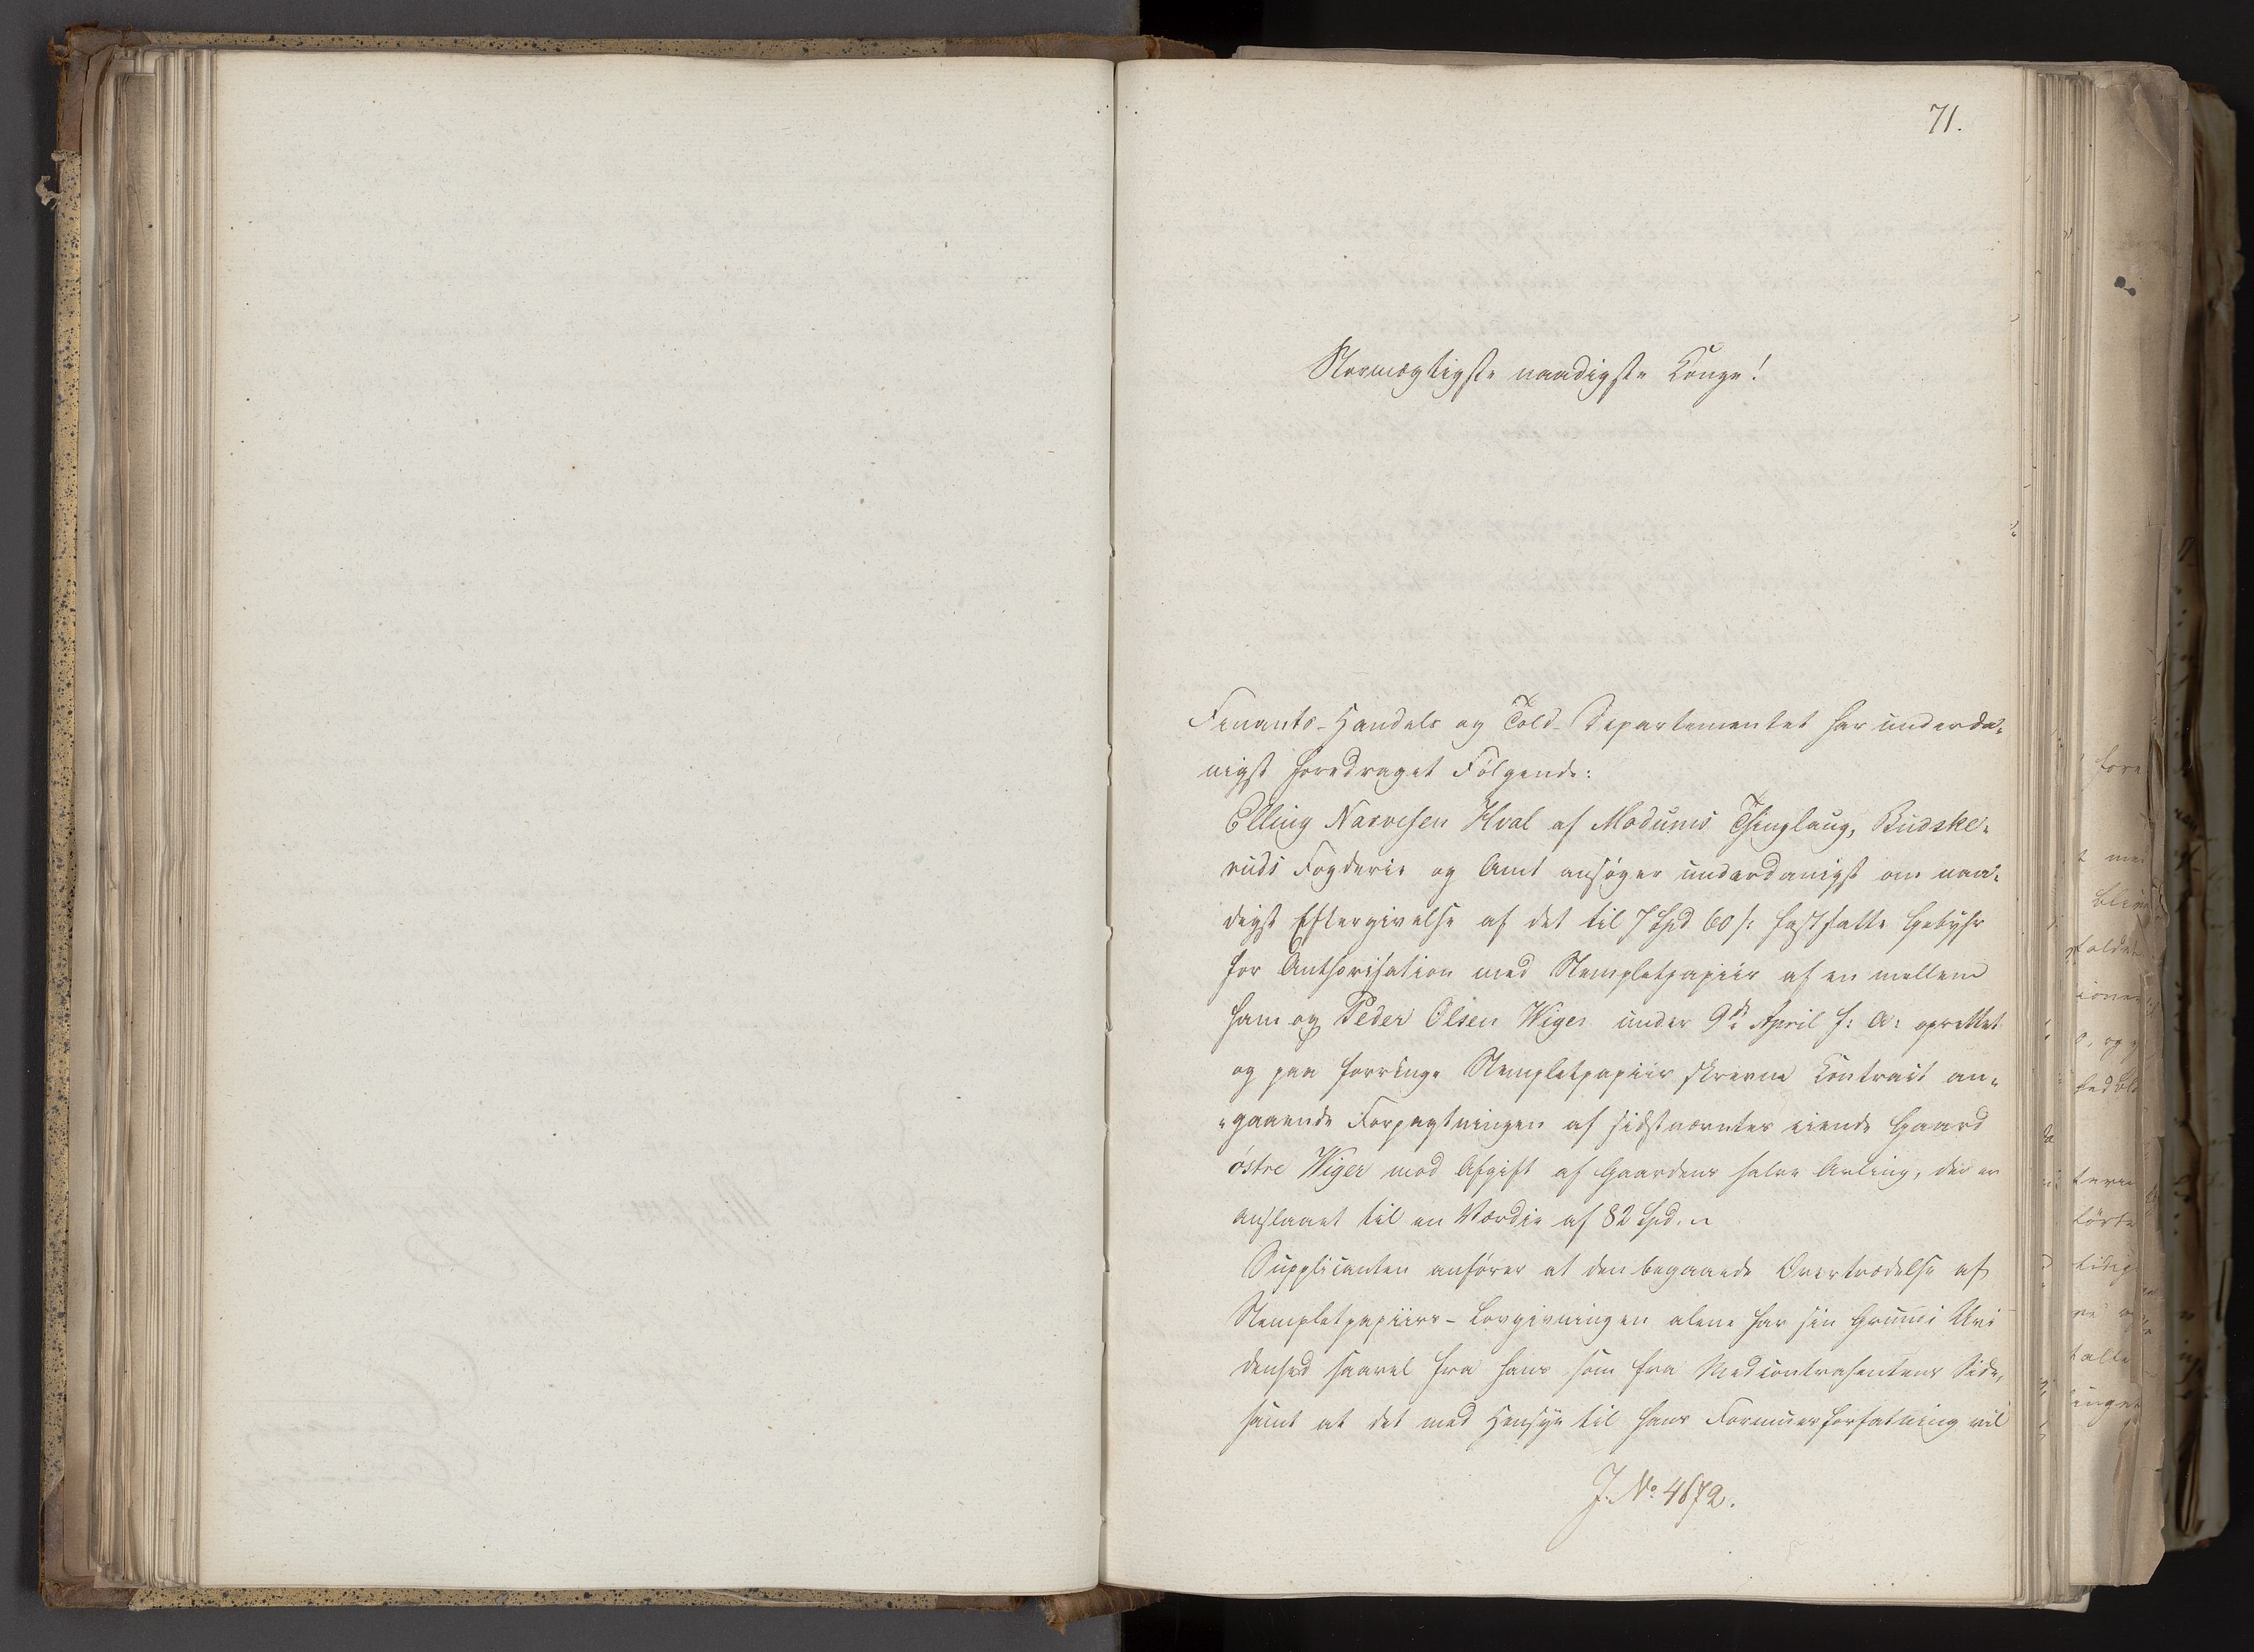 71.
Stormægtigste naadigste Konge!
Finants-Handels og Told-Departementet har underda-
nigst foredraget Følgende:
Elling Narvesen Hval af Modums Thinglaug, Budske-
ruds Fogderie og Amt ansøger underdanigst om naa-
digst Eftergivelse af det til 7 Spd 60 s: fastsatte Gebyhr
for Authorisation med Stempletpapiir af en mellem
ham og Peder Olsen Wiger under 9de April f: A: oprettet
og paa forringe Stempletpapiir skreven Contract an-
-gaaende Forpagtningen af sidstnævntes eiende Gaard
østre Wiger mod Afgift af Gaardens halve Avling, der er
anslaaet til en Værdie af 82 Spd.
Supplicanten anfører at den begaaede Overtrædelse af
Stempletpapiirs-Lovgivningen alene har sin Grund i Uvi
denhed saavel fra hans som fra Medcontrahentens Side,
samt at det med Hensyn til hans Formuesforfatning vil
J. No 4872.